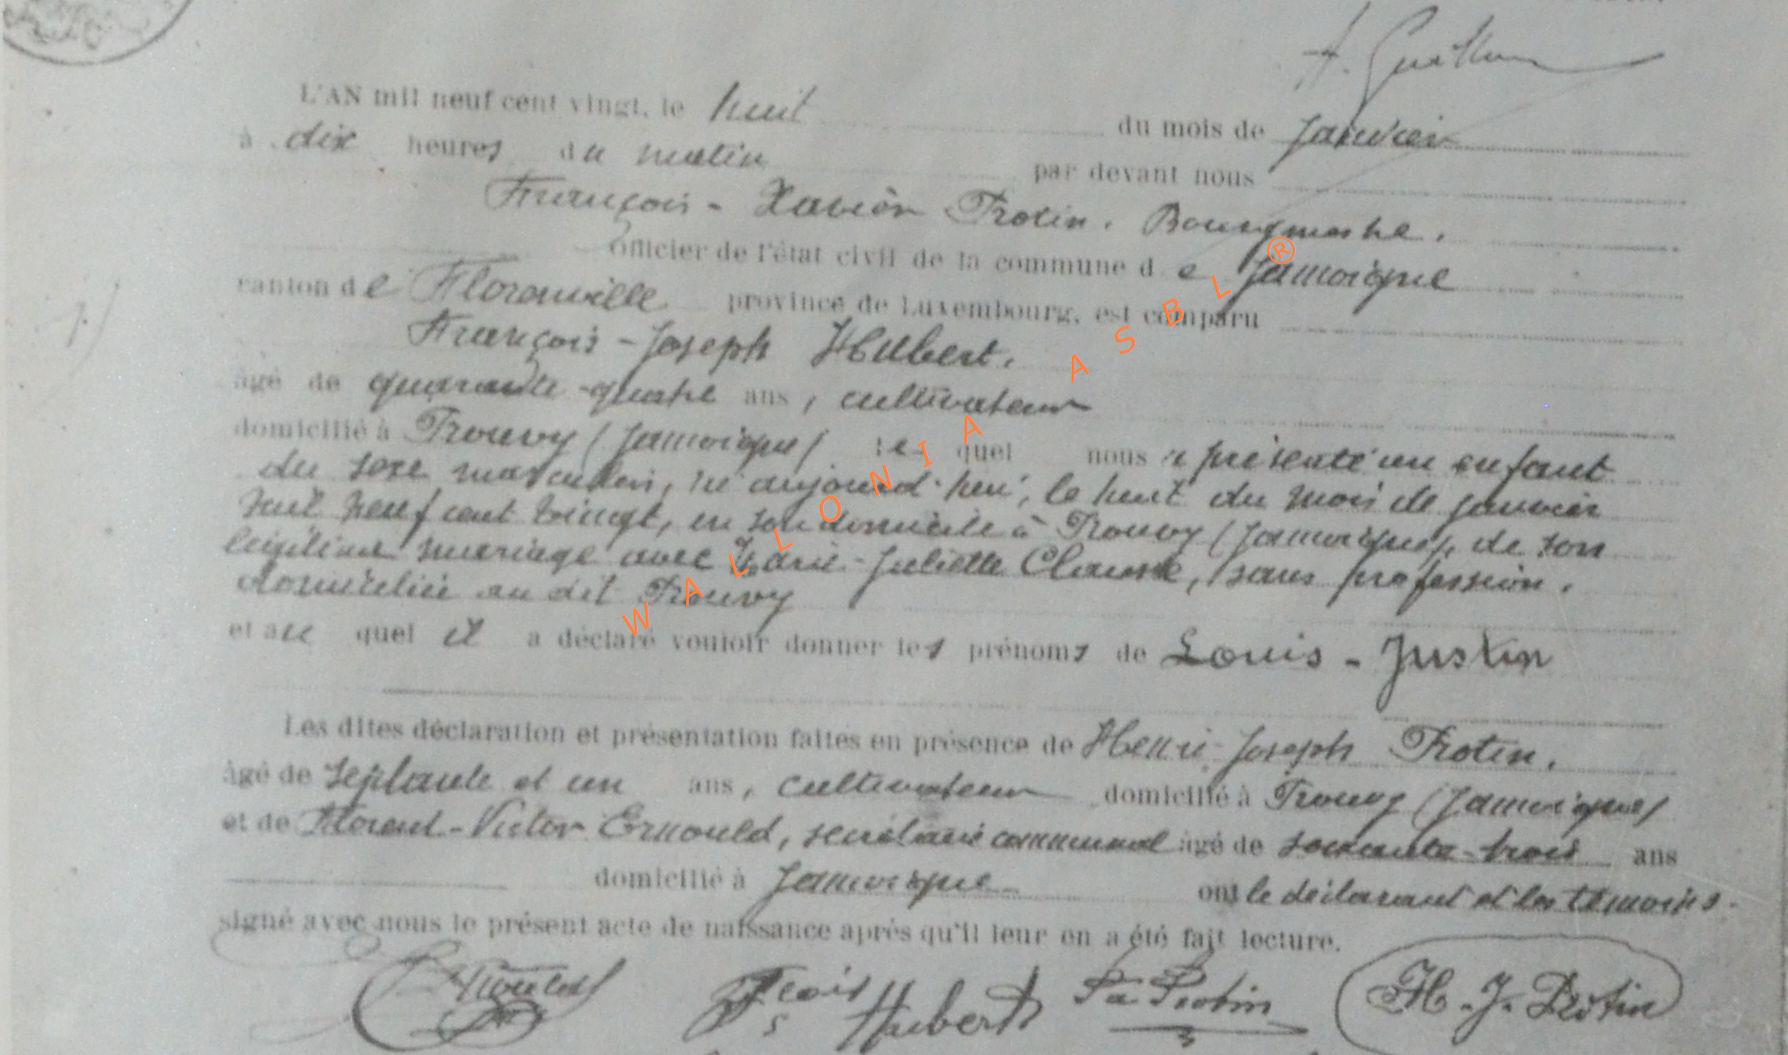 L'AN mil neuf cent vingt, le huit du mois de Janvier
à dix heures du matin par devant nous
François-Xavier Protin, Bourgmestre,
Officier de l'état civil de la commune de Jamoigne
canton de Florenville province de Luxembourg, est comparu
François-Joseph Hubert,
âgé de quarante-quatre ans, cultivateur
domicilié à Prouvy (Jamoigne) lequel nous a présenté un enfant
du sexe masculin, né aujourd'hui, le huit du mois de janvier
mil neuf cent vingt, en son domicile à Prouvy (Jamoigne), de son
légitime mariage avec Marie-Juliette Clausse, sans profession,
domiciliée au dit Prouvy
et auquel il a déclaré vouloir donner les prénoms de Louis-Justin
Les dites déclaration et présentation faites en présence de Henri-Joseph Protin,
âgé de septante et un ans, cultivateur domicilié à Prouvy (Jamoigne)
et de Florent-Victor Ernould, secrétaire communal âgé de soixante-trois ans
domicilié à Jamoigne ont le déclarant et les témoins
signé avec nous le présent acte de naissance après qu'il leur en a été fait lecture.
Ernould Fçois Hubert Protin H.-J. Protin
WALLONIA ASBL®